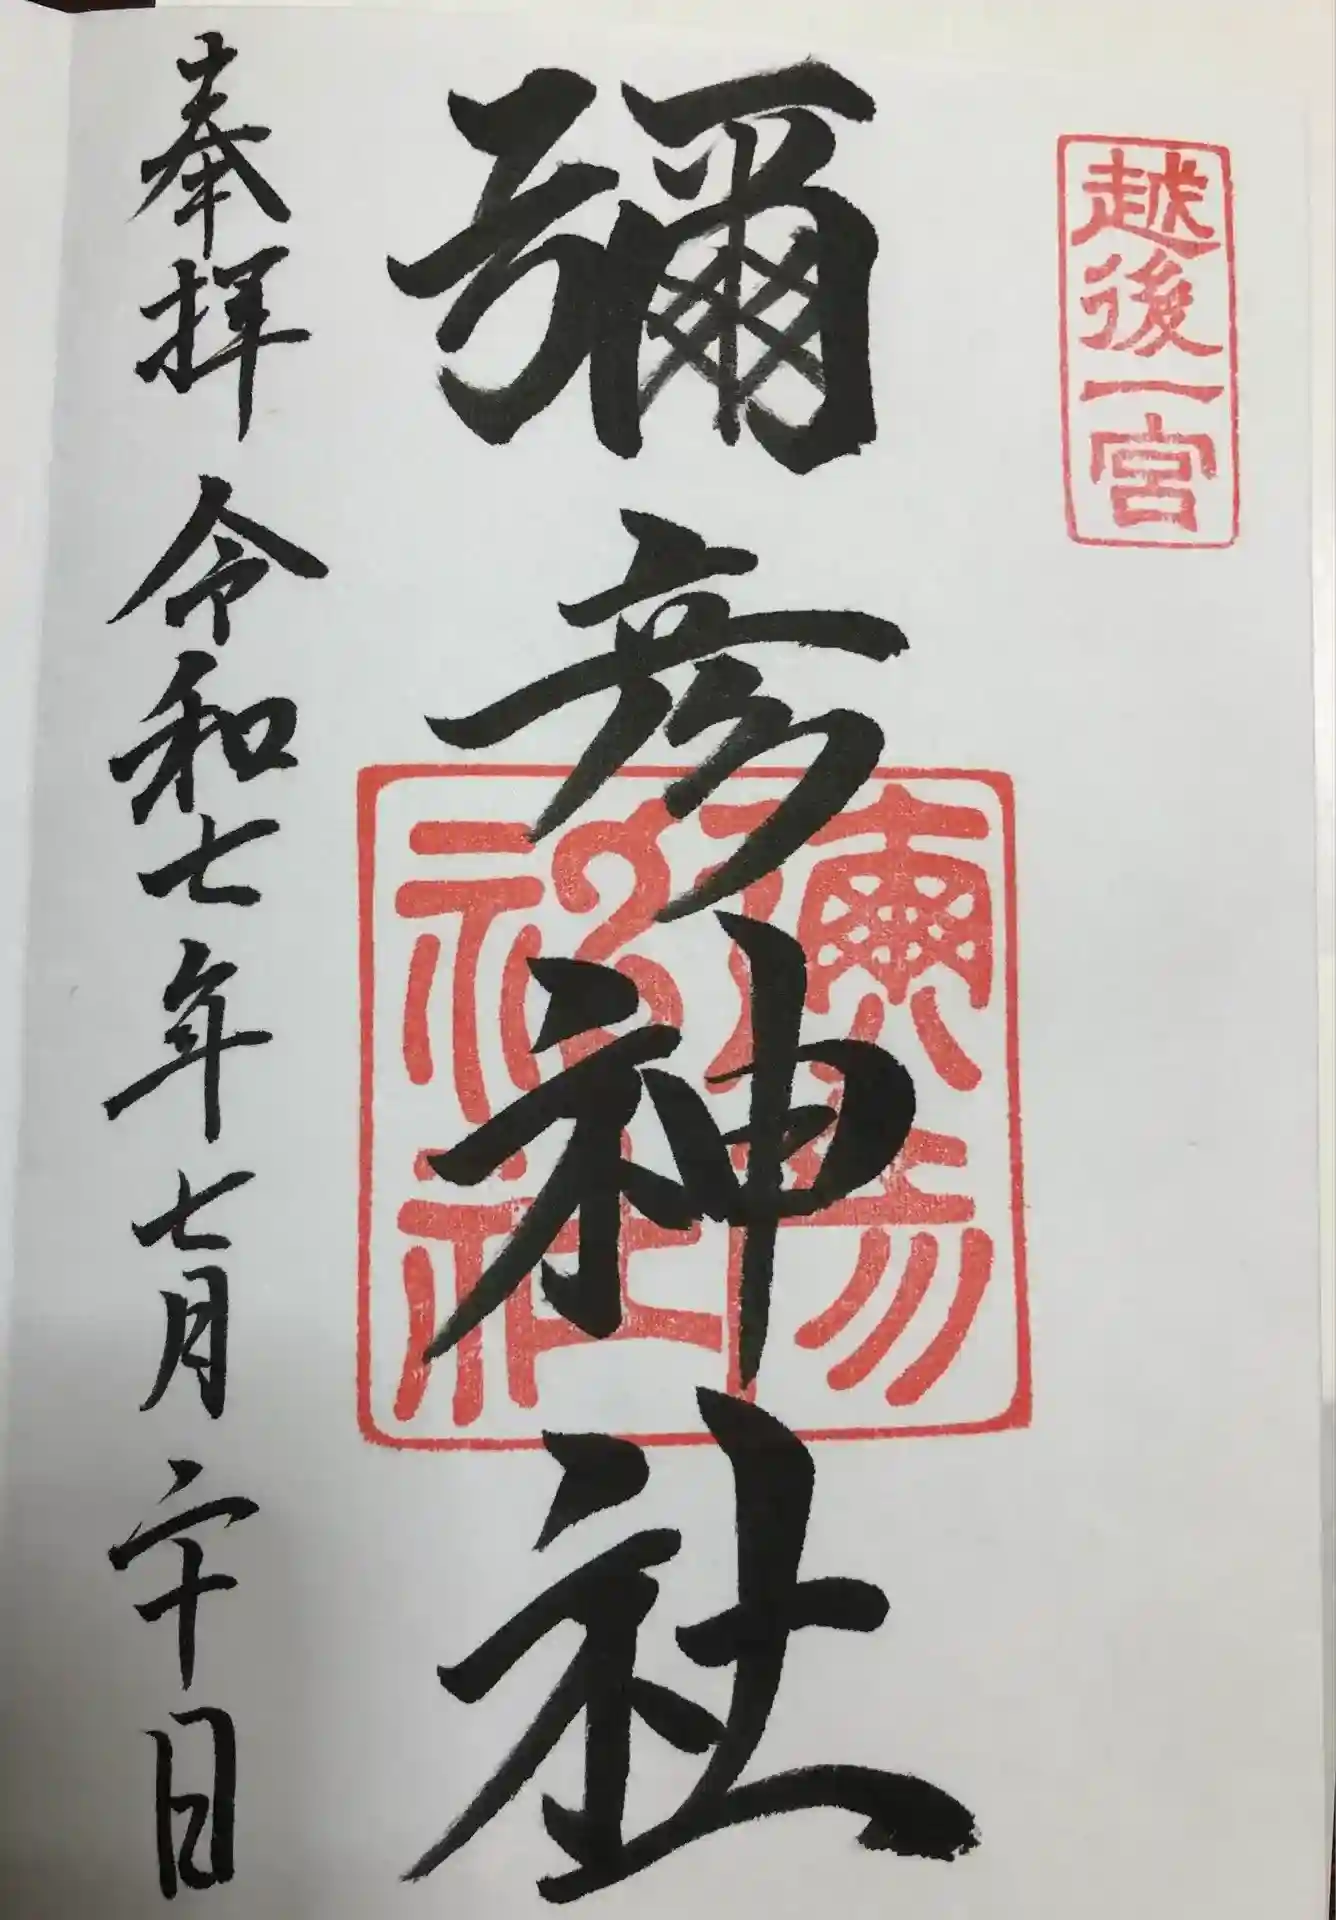 越後一宮
彌彦神社
彌彦神社
奉拝 令和七年七月二十日